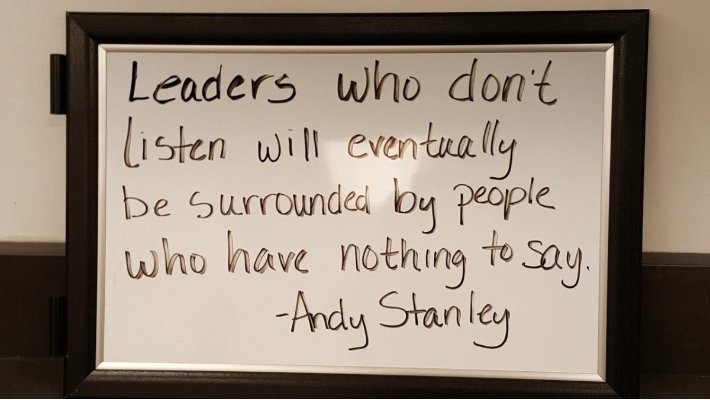 Leaders who don't
listen will eventually
be surrounded by people
who have nothing to say.
-Andy Stanley